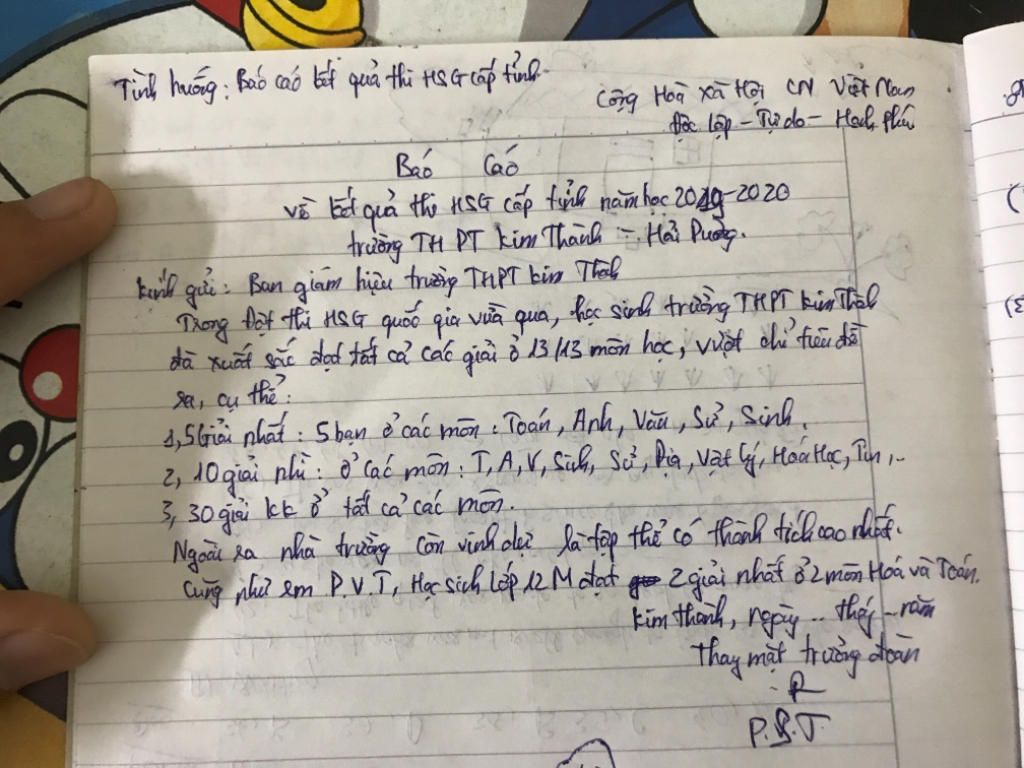 Tình huống: Báo cáo kết quả thi HSG cấp tỉnh.
Cộng Hoà Xã Hội CN Việt Nam
Độc lập - Tự do - Hạnh Phúc
Báo Cáo
về kết quả thi HSG cấp tỉnh năm học 2019-2020
trường THPT Kim Thành - Hải Dương.
Kính gửi: Ban giám hiệu trường THPT Kim Thành
Trong Đợt thi HSG quốc gia vừa qua, học sinh trường THPT Kim Thành
đã xuất sắc đạt tất cả các giải ở 13/13 môn học, vượt chỉ tiêu đề
ra, cụ thể:
1, 5 Giải nhất: 5 bạn ở các môn: Toán, Anh, Văn, Sử, Sinh.
2, 10 giải nhì: ở các môn: T, A, V, Sinh, Sử, Địa, Vật lý, Hoá Học, Tin,..
3, 30 giải KK ở tất cả các môn.
Ngoài ra nhà trường còn vinh dự là tập thể có thành tích cao nhất.
Cũng như em P.V.T, Học sinh lớp 12M đạt 2 giải nhất ở 2 môn Hoá và Toán.
Kim thành, ngày .. tháng - năm
Thay mặt trưởng đoàn